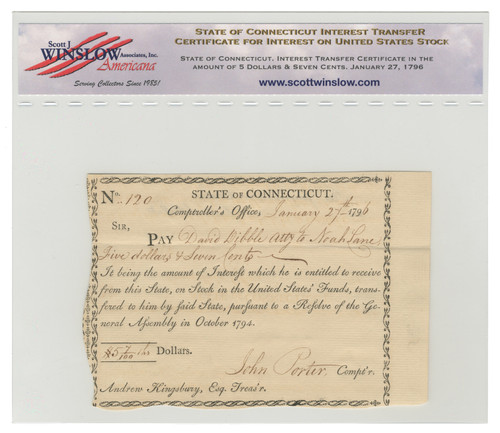 Scott J
WINSLOW
Associates, Inc.
Americana
Serving Collectors Since 1985!
State of Connecticut Interest Transfer
Certificate for Interest on United States Stock
State of Connecticut. Interest Transfer Certificate in the
amount of 5 Dollars & Seven Cents. January 27, 1796
www.scottwinslow.com
No. 120 STATE OF CONNECTICUT.
Comptroller's Office, January 27th 1796
SIR,
PAY David Dibble atty to Noah Lane
Five dollars & Seven Cents
It being the amount of Interest which he is entitled to receive
from this State, on Stock in the United States' Funds, trans-
ferred to him by said State, pursuant to a Resolve of the Ge-
neral Assembly in October 1794.
$5 7/100 Dollars.
John Porter, Compt'r.
Andrew Kingsbury, Esq. Treas'r.